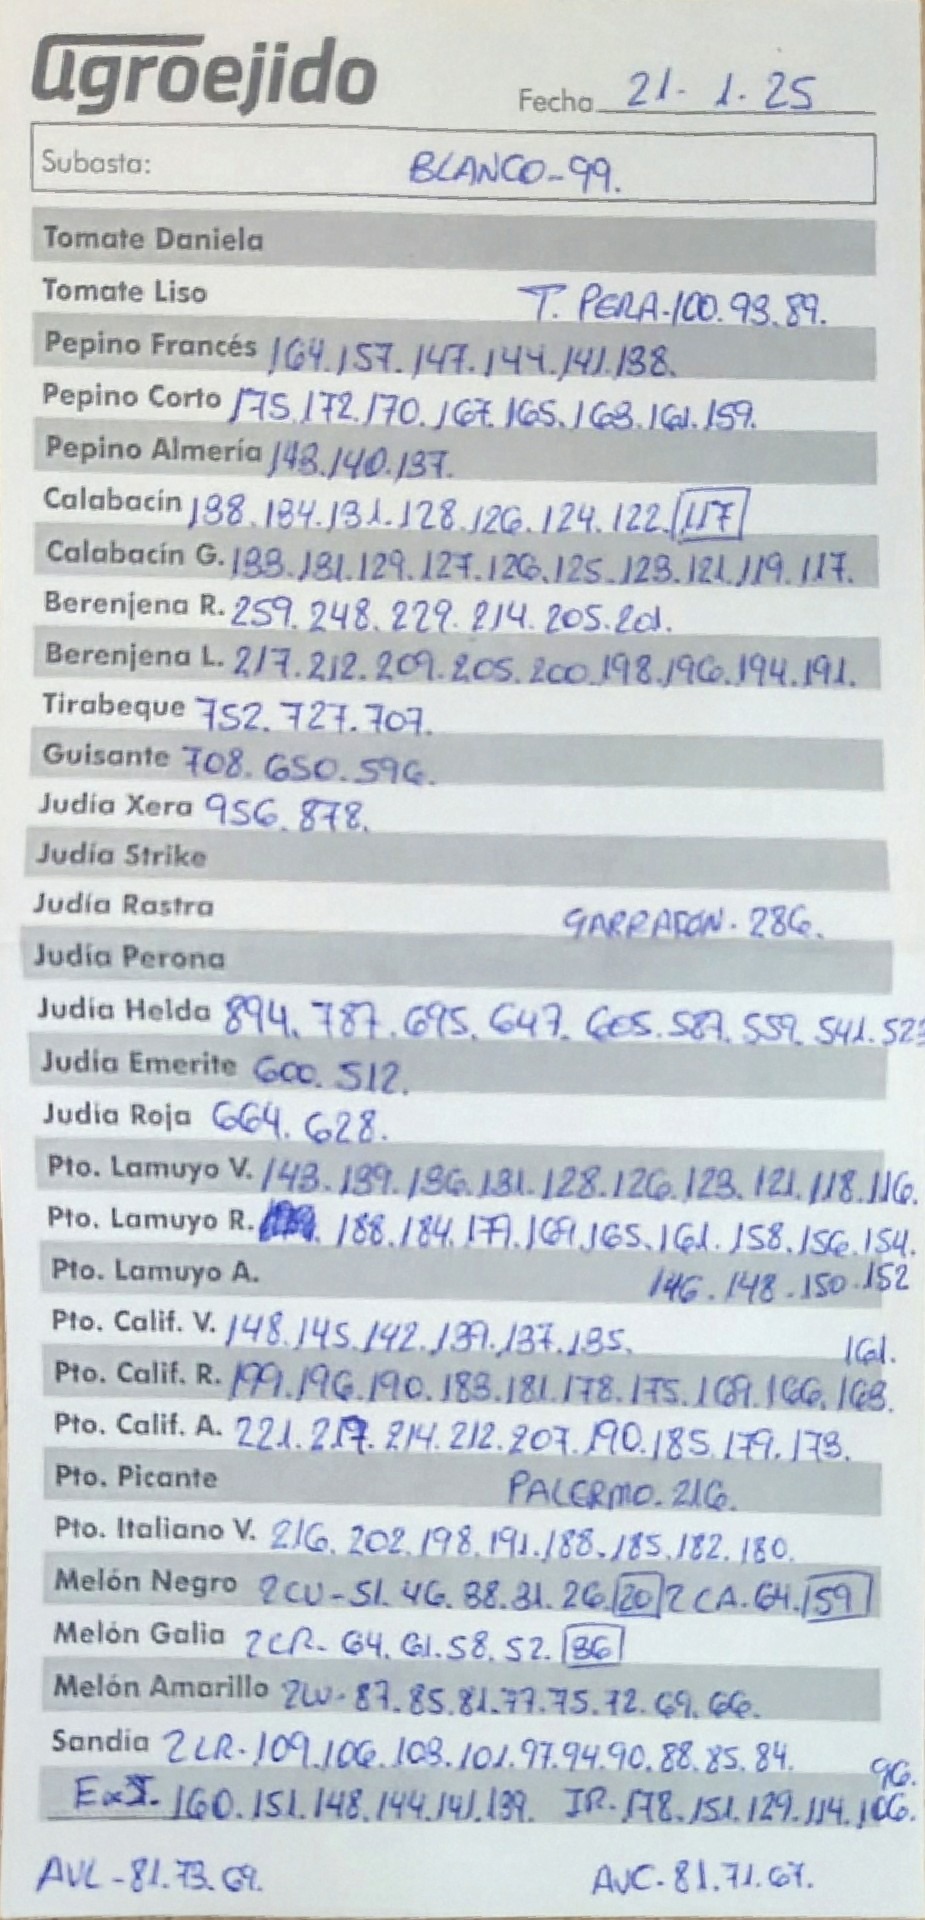 agroejido
Fecha 21. 1. 25
Subasta: BLANCO-99.
Tomate Daniela
Tomate Liso T. PERA-100.93.89.
Pepino Francés 164.157.147.144.141.138.
Pepino Corto 175.172.170.167.165.163.161.159.
Pepino Almería 143.140.137.
Calabacín 138.134.131.128.126.124.122.117
Calabacín G. 133.131.129.127.126.125.123.121.119.117.
Berenjena R. 259.248.229.214.205.201.
Berenjena L. 217.212.209.205.200.198.196.194.191.
Tirabeque 752.727.707.
Guisante 708.650.596.
Judía Xera 956.878.
Judía Strike
Judía Rastra GARRAFON. 286.
Judía Perona
Judía Helda 894.787.695.647.605.587.559.541.523
Judía Emerite 600.512.
Judía Roja 664.628.
Pto. Lamuyo V. 143.139.136.131.128.126.123.121.118.116.
Pto. Lamuyo R. 188.184.179.169.165.161.158.156.154.
Pto. Lamuyo A. 146.148.150.152
Pto. Calif. V. 148.145.142.139.137.135. 161.
Pto. Calif. R. 199.196.190.183.181.178.175.169.166.163.
Pto. Calif. A. 221.217.214.212.207.190.185.179.173.
Pto. Picante PALERMO. 216.
Pto. Italiano V. 216.202.198.191.188.185.182.180.
Melón Negro 2CU-51.46.38.31.26.20 2CA.64.59
Melón Galia 2CR-64.61.58.52.36
Melón Amarillo 2LV-87.85.81.77.75.72.69.66.
Sandía 2LR-109.106.103.101.97.94.90.88.85.84. 96.
ExI. 160.151.148.144.141.139. IR-178.151.129.114.106.
AVL-81.73.69. AVC-81.71.67.